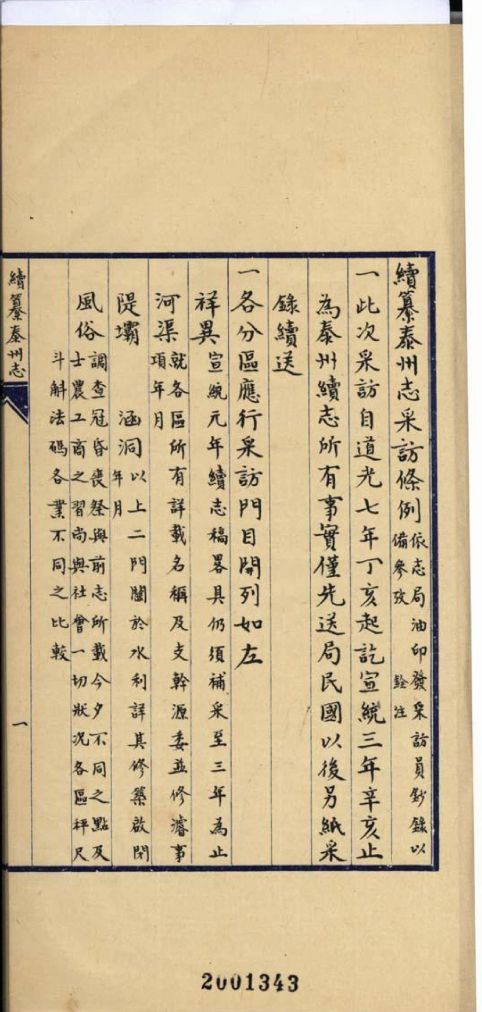 續纂泰州志采訪條例依志局油印發采訪員鈔錄以
備參攷　銓注
一此次采訪自道光七年丁亥起訖宣統三年辛亥止
為泰州續志所有事實僅先送局民國以後另紙采
錄續送
一各分區應行采訪門目開列如左
祥異宣統元年續志稿畧具仍須補采至三年為止
河渠就各區所有詳載名稱及支幹源委並修濬事
項年月
隄壩　涵洞以上二門關於水利詳其修築啟閉
年月
風俗調查冠昏喪祭與前志所載今夕不同之點及
士農工商之習尚與社會一切狀況各區秤尺
斗斛法碼各業不同之比較
續纂泰州志
一
2001343